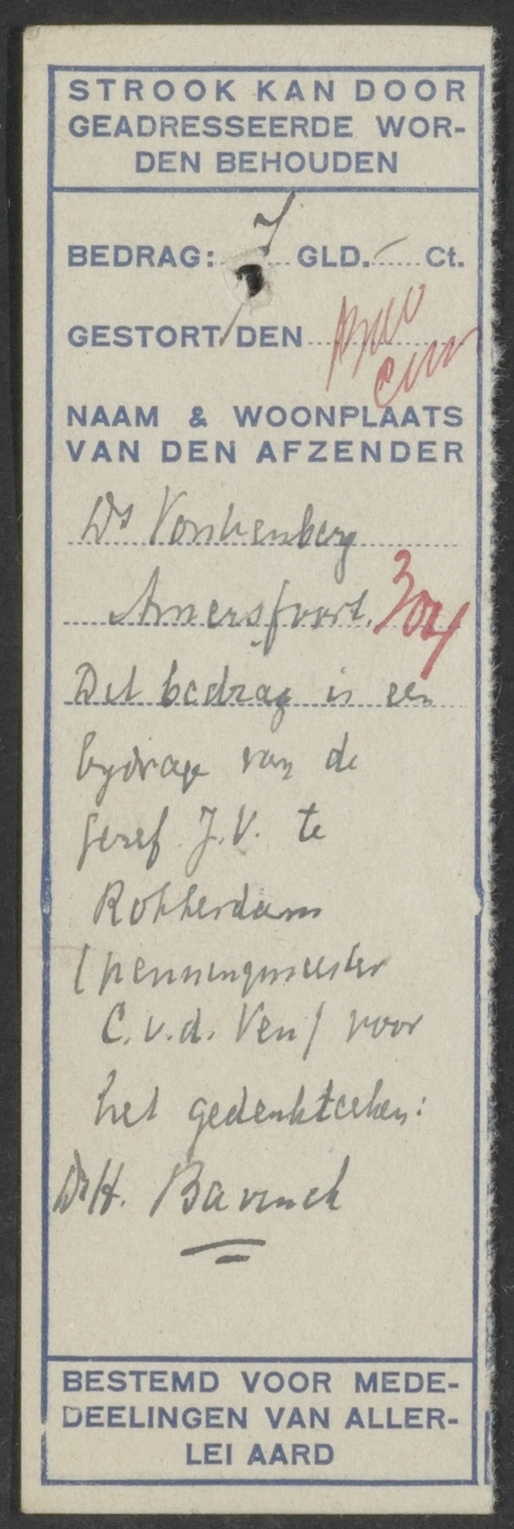 STROOK KAN DOOR
GEADRESSEERDE WOR-
DEN BEHOUDEN
BEDRAG: 7 GLD. - Ct.
GESTORT DEN
NAAM & WOONPLAATS
VAN DEN AFZENDER
Ds Vonkenberg
Amersfoort.
Dit bedrag is een
bydrage van de
Geref. J.V. te
Rotterdam
(penningmeester
C. v.d. Ven) voor
het gedenkteeken:
Dr H. Bavinck
BESTEMD VOOR MEDE-
DEELINGEN VAN ALLER-
LEI AARD